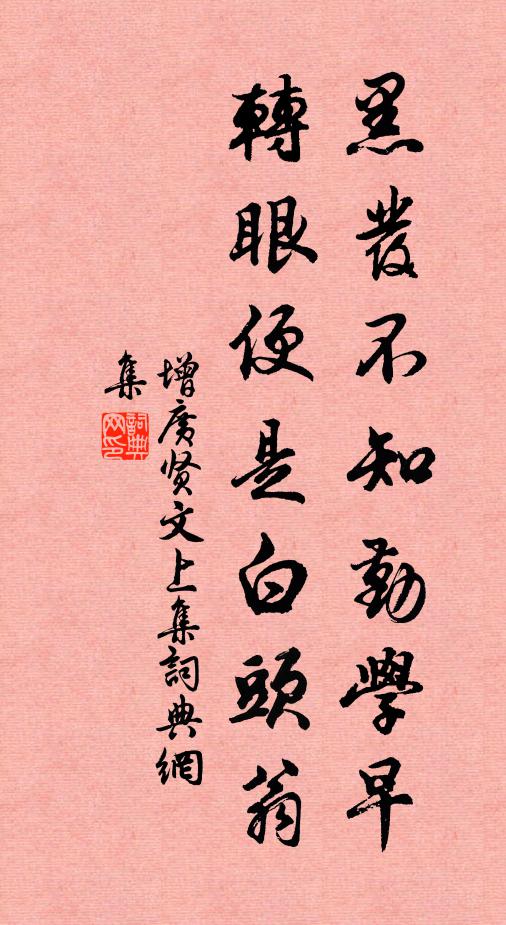 黑發不知勤學早
轉眼便是白頭翁
增廣贤文上集詞典網
集
詞典网印